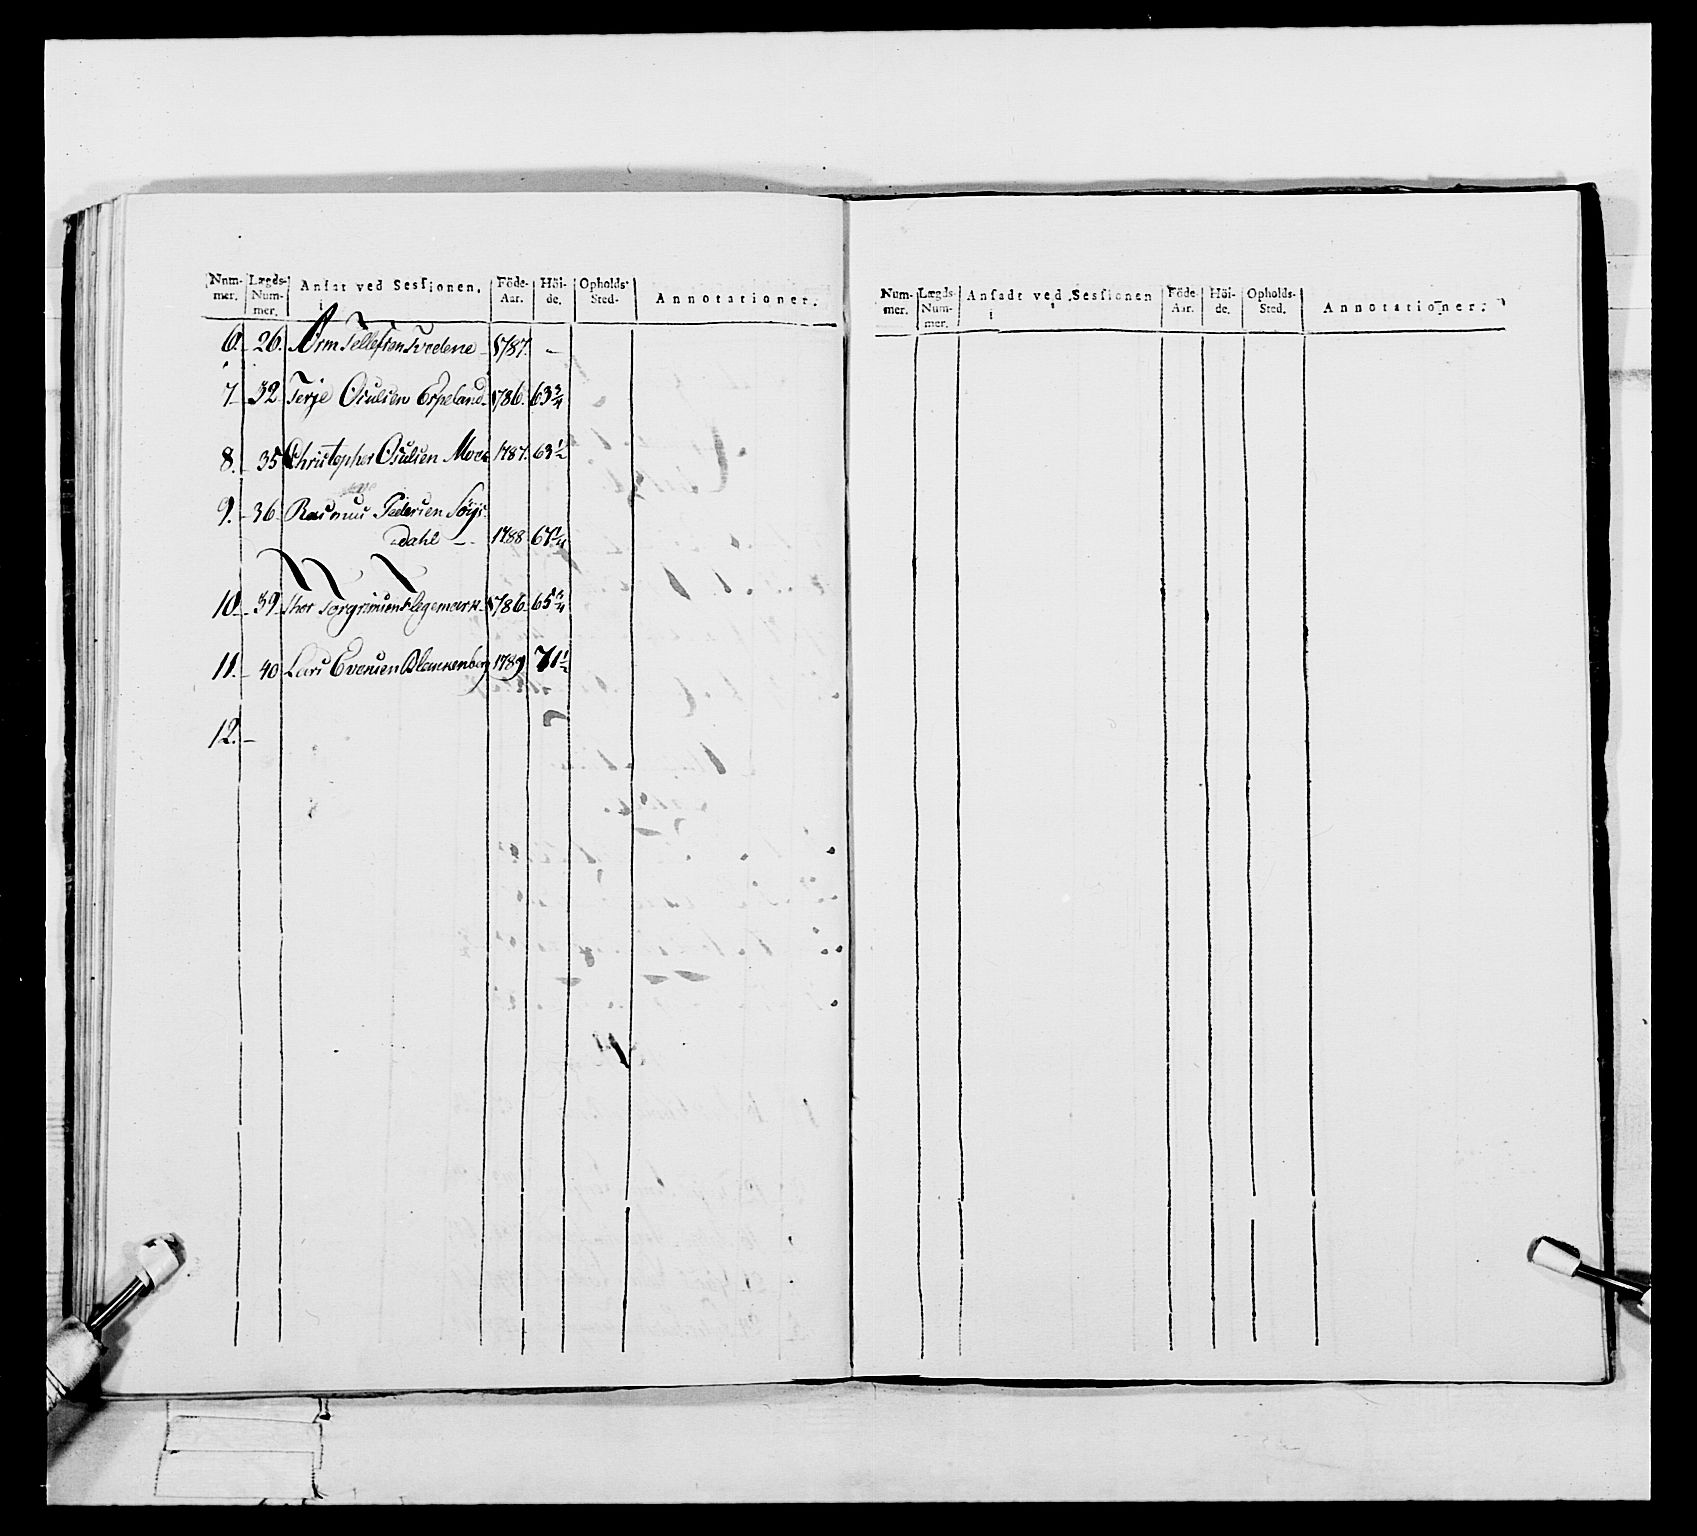 Num-mer. Lægds-Num-mer. Ansat ved Sessionen. Föde-Aar. Höi-de. Opholds-Sted. Annotationer.
6. 26. Orm Tellefsen Tvedene 1787. –
7. 32 Terje Osulsen Espeland 1786. 63 3/4
8. 35 Christopher Osulsen Moe 1787. 63 1/2
9. 36. Rasmus Pedersen
dahl – 1788 67 1/4
10. 39. Thor Torgrimsen 1786. 65 3/4
11. 40 Lars Evensen Blankenberg 1789 71 1/2
12. –
Num-mer. Lægds-Num-mer. Ansadt ved Sessionen Föde-Aar. Höi-de. Opholds-Sted. Annotationer.